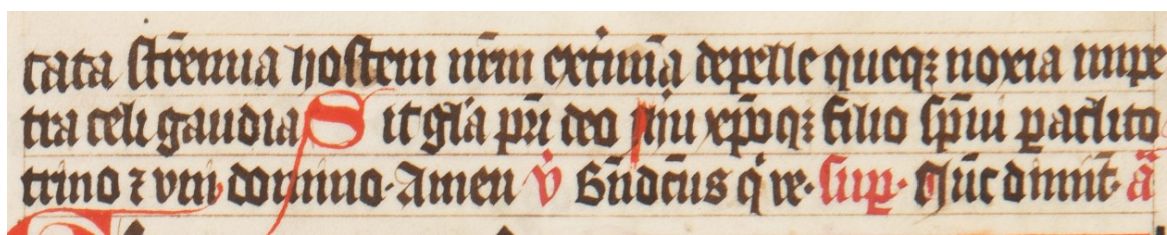 tata strēnua hostem nr̄m extīmā depelle queqꝫ noxia impe
tra celi gaudia Sit gl̄a pr̄i deo ihū xp̄oqꝫ filio sp̄ui ꝑaclito
trino ⁊ vni domino· Amen v̄ Bn̄dc̄us q̇ ve· suꝑ· Nūc dimit̄· aᷓ